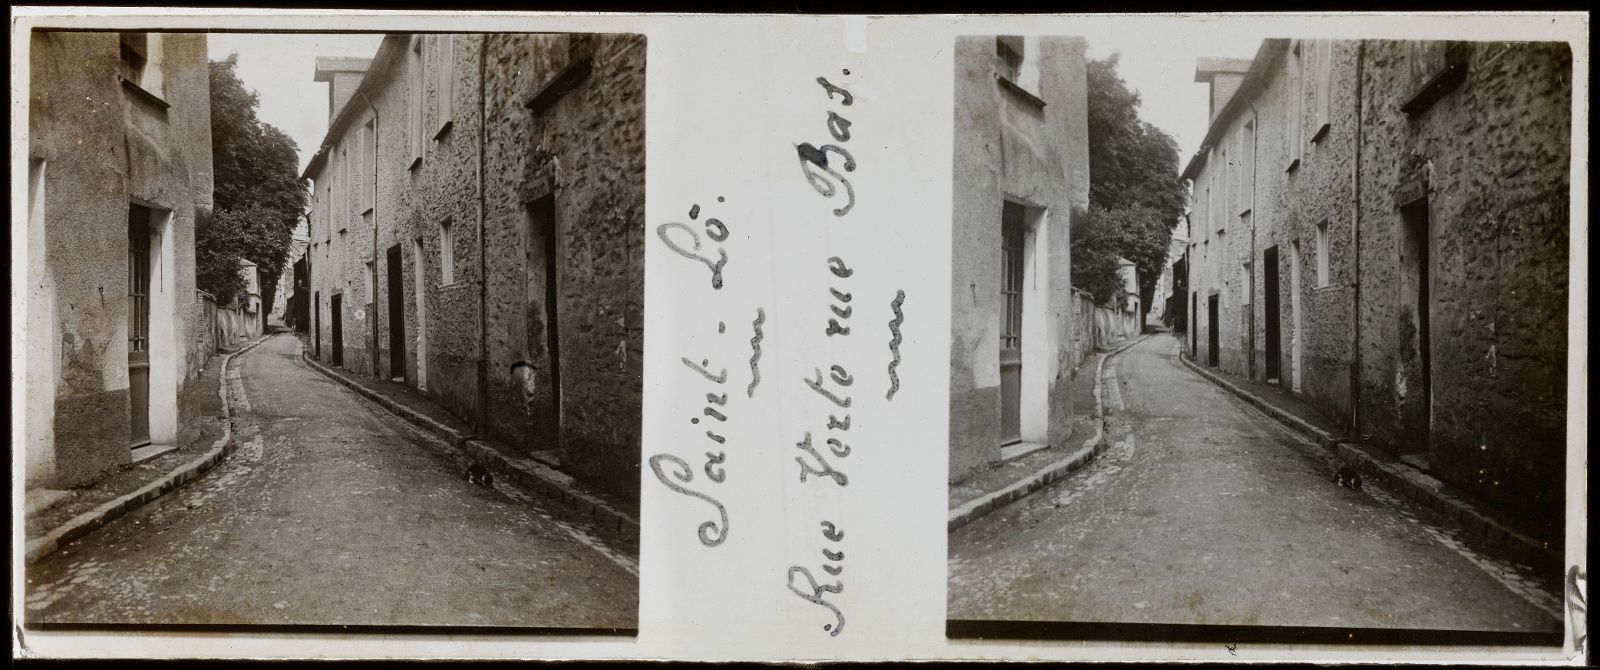 Saint-Lô.
Rue Verte rue Bas.